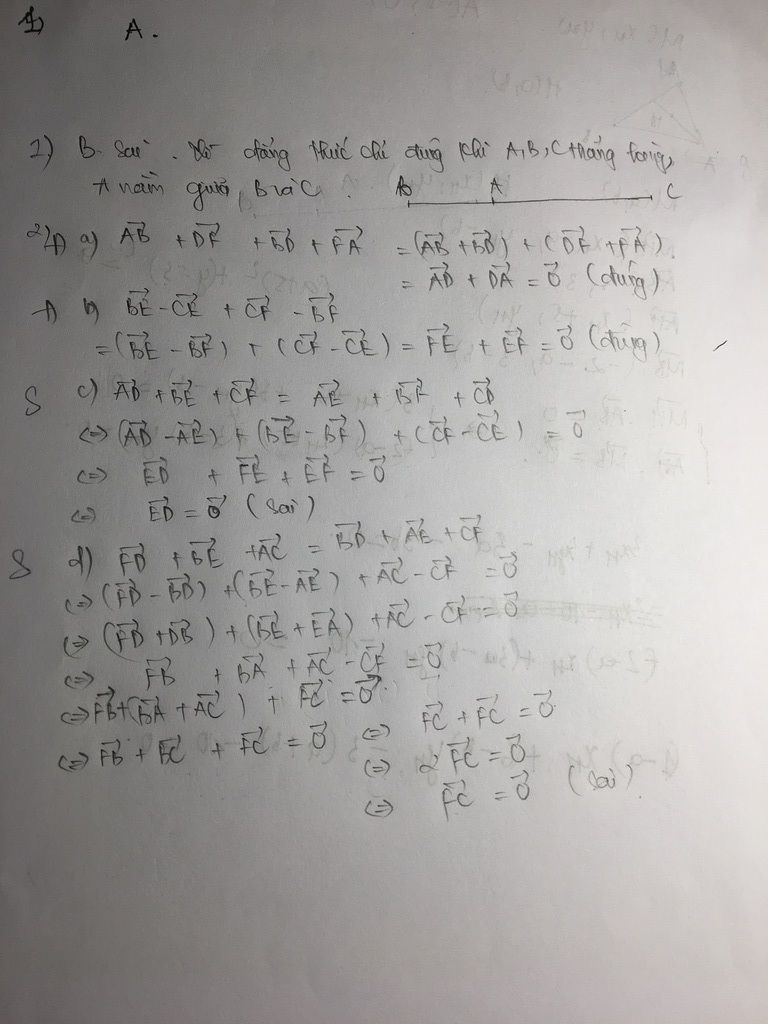 1) A.
1) B. Sai. Vì đẳng thức chỉ đúng khi A, B, C thẳng hàng,
A nằm giữa B và C. B A C
2) Đ a) \vec{AB} + \vec{DF} + \vec{BD} + \vec{FA} = (\vec{AB} + \vec{BD}) + (\vec{DF} + \vec{FA}).
= \vec{AD} + \vec{DA} = \vec{0} (đúng)
Đ b) \vec{BE} - \vec{CE} + \vec{CF} - \vec{BF}
= (\vec{BE} - \vec{BF}) + (\vec{CF} - \vec{CE}) = \vec{FE} + \vec{EF} = \vec{0} (đúng)
S c) \vec{AD} + \vec{BE} + \vec{CF} = \vec{AE} + \vec{BF} + \vec{CD}
<=> (\vec{AD} - \vec{AE}) + (\vec{BE} - \vec{BF}) + (\vec{CF} - \vec{CE}) = \vec{0}
<=> \vec{ED} + \vec{FE} + \vec{EF} = \vec{0}
<=> \vec{ED} = \vec{0} (sai)
S d) \vec{FD} + \vec{BE} + \vec{AC} = \vec{BD} + \vec{AE} + \vec{CF}
<=> (\vec{FD} - \vec{BD}) + (\vec{BE} - \vec{AE}) + \vec{AC} - \vec{CF} = \vec{0}
<=> (\vec{FD} + \vec{DB}) + (\vec{BE} + \vec{EA}) + \vec{AC} - \vec{CF} = \vec{0}
<=> \vec{FB} + \vec{BA} + \vec{AC} - \vec{CF} = \vec{0}
<=> \vec{FB} + (\vec{BA} + \vec{AC}) + \vec{FC} = \vec{0}
<=> \vec{FB} + \vec{BC} + \vec{FC} = \vec{0}
<=> \vec{FC} + \vec{FC} = \vec{0}
<=> 2\vec{FC} = \vec{0}
<=> \vec{FC} = \vec{0} (sai).